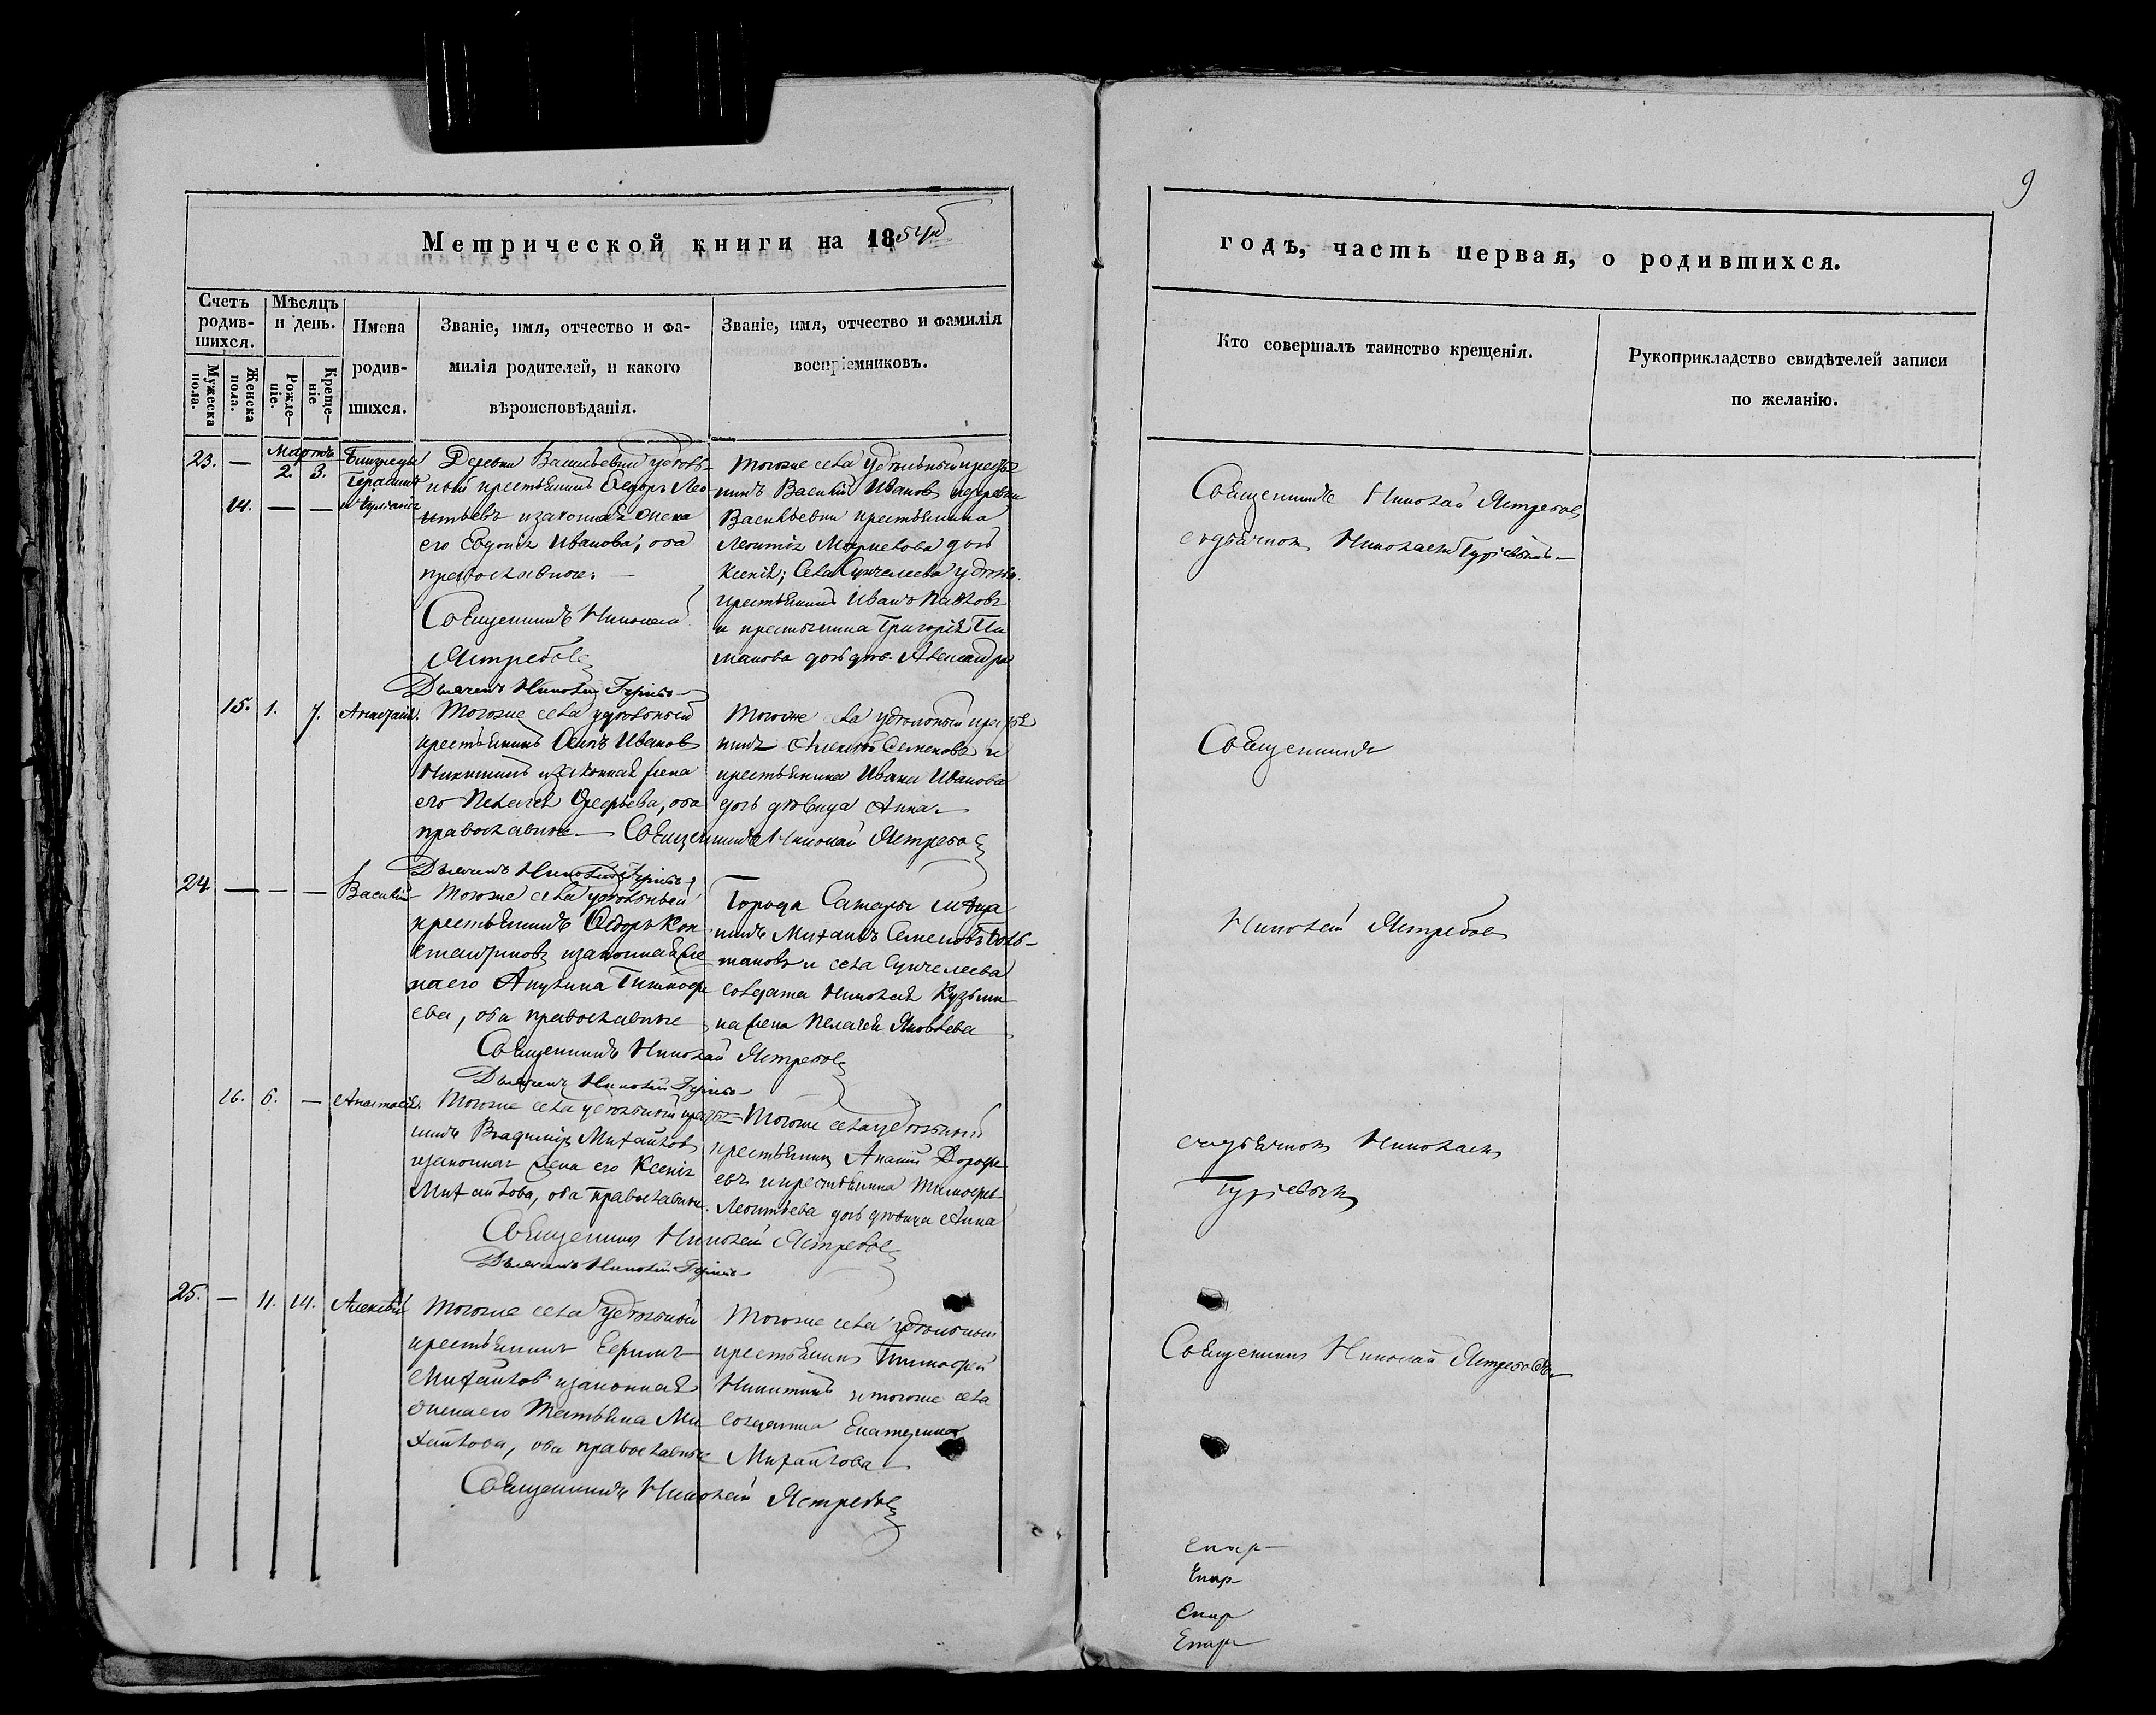 9
Метрической книги на 1854й
годъ, часть первая, о родившихся.
Счетъ родив-
шихся.
Мѣсяцъ
и день.
Мужеска
пола.
Женска
пола.
Рожде-
ніе.
Креще-
ніе
Имена
родив-
шихся.
Званіе, имя, отчество и фа-
милія родителей, и какого
вѣроисповѣданія.
Званіе, имя, отчество и фамилія
воспріемниковъ.
Кто совершалъ таинство крещенія.
Рукоприкладство свидѣтелей записи
по желанію.
23. — Мартъ
2. 3.
14. — —
Близнецы
Герасимъ
и Іуліанія
Деревни Васильевки удѣль-
ный крестьянинъ Ѳедоръ Лео-
нтьевъ и законная жена
его Евдокія Иванова, оба
православные. —
Священникъ Николай
Ястребовъ
Дьячекъ Николай Гурьевъ
Тогоже села удѣльный крестья-
нинъ Василій Ивановъ и деревни
Васильевки крестьянина
Леонтія дочь
Ксенія; села Сунчелеева удѣльн.
крестьянинъ Иванъ Павловъ
и крестьянина Григорія
дочь дѣв. Александра
Священникъ Николай Ястребовъ
съ дьячкомъ Николаемъ Гурьевымъ —
15. 1. 7.
Анастасія.
Тогоже села удѣльный
крестьянинъ Осипъ Ивановъ
Никитинъ и законная жена
его Пелагея, оба
православные. — Священникъ Николай Ястребовъ
Дьячекъ Николай Гурьевъ
Тогоже села удѣльный крестья-
нинъ Алексѣй Семеновъ и
крестьянина Ивана Иванова
дочь дѣвица Анна. —
Священникъ
24 — — —
Василій
Тогоже села удѣльный
крестьянинъ Ѳедоръ Кон-
стантиновъ и законная же-
на его Акулина Тимофе-
ева, оба православные
Священникъ Николай Ястребовъ
Дьячекъ Николай Гурьевъ
Города Самары мѣща-
нинъ Михаилъ Семеновъ
и села Сунчелеева
солдата Николая Кузьми-
на жена Пелагея Яковлева
Николай Ястребовъ
16. 6. —
Анастасія.
Тогоже села удѣльный крестья-
нинъ Владиміръ Михайловъ
и законная жена его Ксенія
Михайлова, оба православные.
Священникъ Николай Ястребовъ
Дьячекъ Николай Гурьевъ
Тогоже села удѣльный
крестьянинъ Ананій Дорофе-
евъ и крестьянина Тимофея
Леонтьева дочь дѣвица Анна
съ дьячкомъ Николаемъ
Гурьевымъ
25. — 11. 14.
Алексѣй
Тогоже села удѣльный
крестьянинъ Ефимъ
Михайловъ и законная
жена его Татьяна Ми-
хайлова, оба православные
Священникъ Николай Ястребовъ
Тогоже села удѣльный
крестьянинъ Тимофей
Никитинъ и тогоже села
солдатка Екатерина
Михайлова
Священникъ Николай Ястребовъ